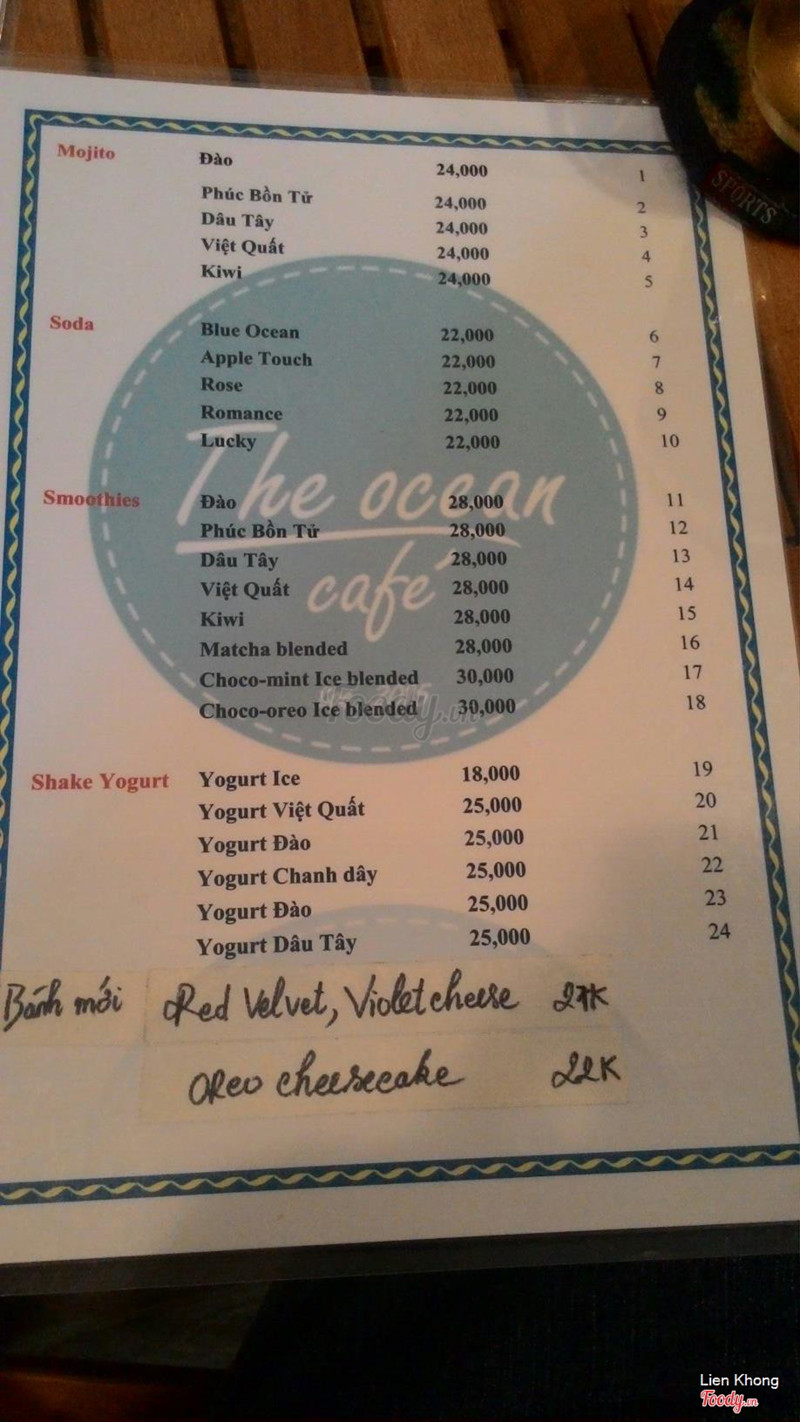 SPORTS
Mojito Đào 24,000 1
Phúc Bồn Tử 24,000 2
Dâu Tây 24,000 3
Việt Quất 24,000 4
Kiwi 24,000 5
Soda Blue Ocean 22,000 6
Apple Touch 22,000 7
Rose 22,000 8
Romance 22,000 9
Lucky 22,000 10
The ocean
café
Smoothies Đào 28,000 11
Phúc Bồn Tử 28,000 12
Dâu Tây 28,000 13
Việt Quất 28,000 14
Kiwi 28,000 15
Matcha blended 28,000 16
Choco-mint Ice blended 30,000 17
Choco-oreo Ice blended 30,000 18
foody.vn
Shake Yogurt Yogurt Ice 18,000 19
Yogurt Việt Quất 25,000 20
Yogurt Đào 25,000 21
Yogurt Chanh dây 25,000 22
Yogurt Đào 25,000 23
Yogurt Dâu Tây 25,000 24
Bánh mới Red Velvet, Violet cheese 27K
Oreo cheesecake 22K
Lien Khong
Foody.vn